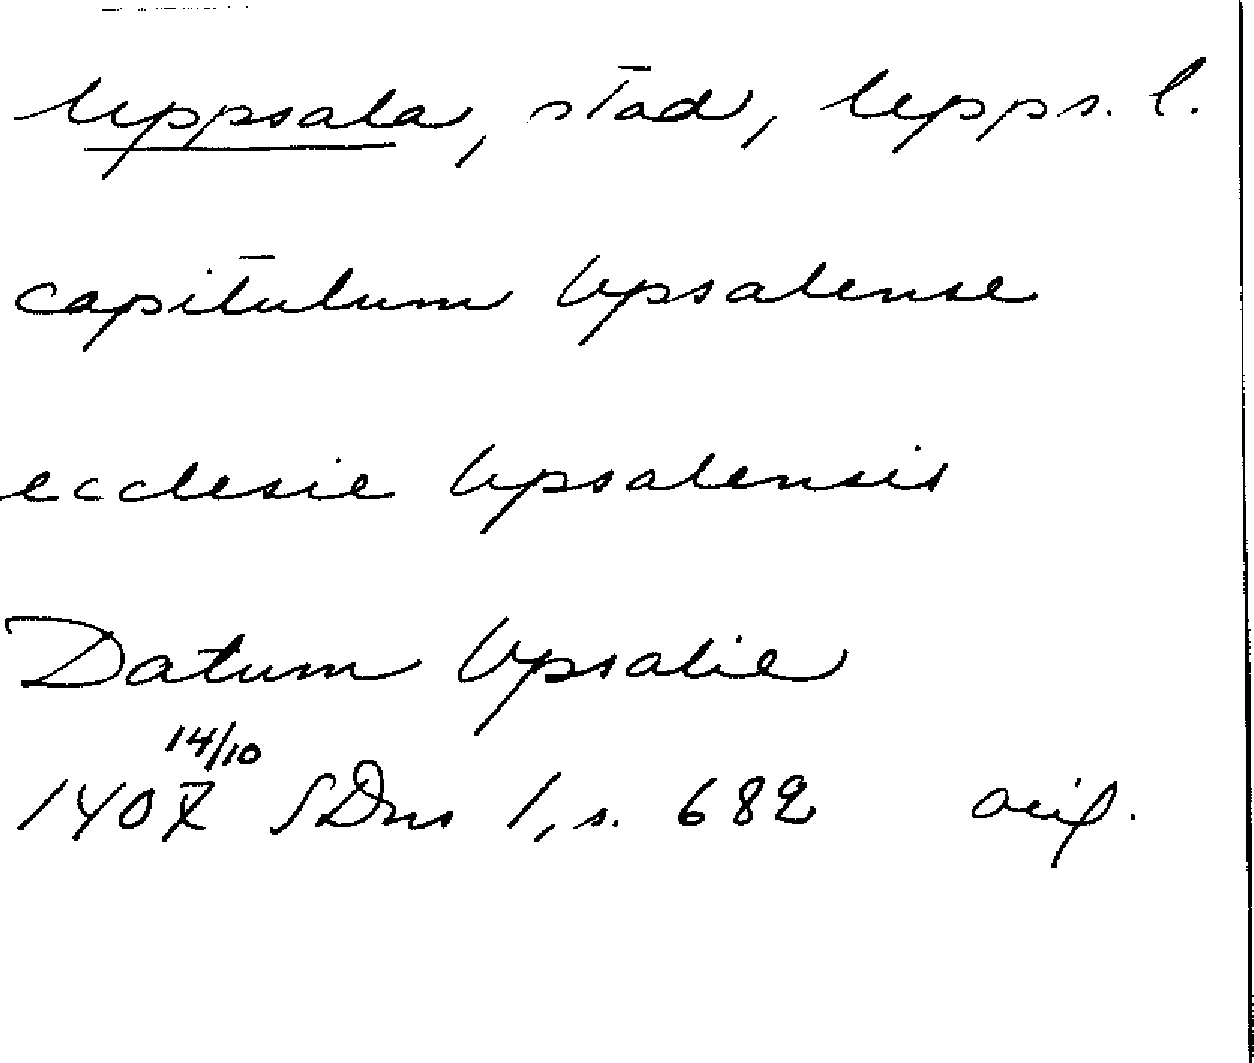 Uppsala, stad, Upps. l.
capitulum Vpsalense
ecclesie Vpsalensis
Datum Vpsalie
14/10
1407 SDns 1, s. 682 orig.